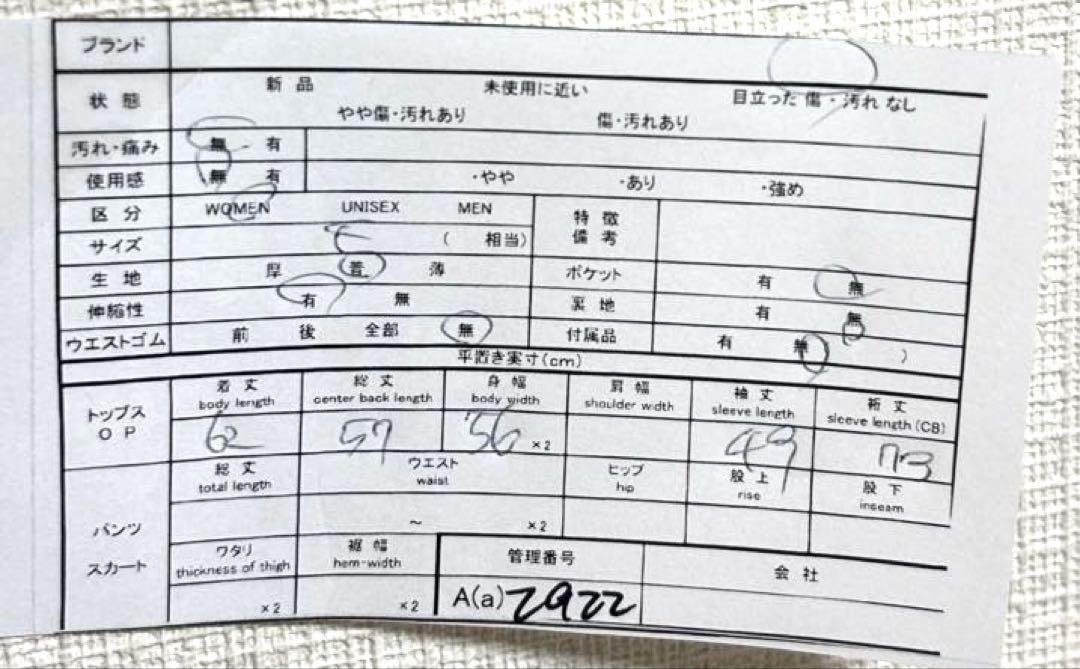 ブランド
状態 新品 未使用に近い 目立った 傷・汚れ なし
やや傷・汚れあり 傷・汚れあり
汚れ・痛み 無 有
使用感 無 有 ・やや ・あり ・強め
区分 WOMEN UNISEX MEN 特徴
備考
サイズ ( 相当)
生地 厚 普 薄 ポケット 有 無
伸縮性 有 無 裏地 有 無
ウエストゴム 前 後 全部 無 付属品 有 無 )
平置き実寸(cm)
トップス
OP
着丈 総丈 身幅 肩幅 袖丈 裄丈
body length center back length body width shoulder width sleeve length sleeve length (CB)
62 57 56 ×2 49 73
パンツ
スカート
総丈 ウエスト ヒップ 股上 股下
total length waist hip rise inseam
～ ×2
ワタリ 裾幅 管理番号 会社
thickness of thigh hem-width
×2 ×2 A(a) 2922